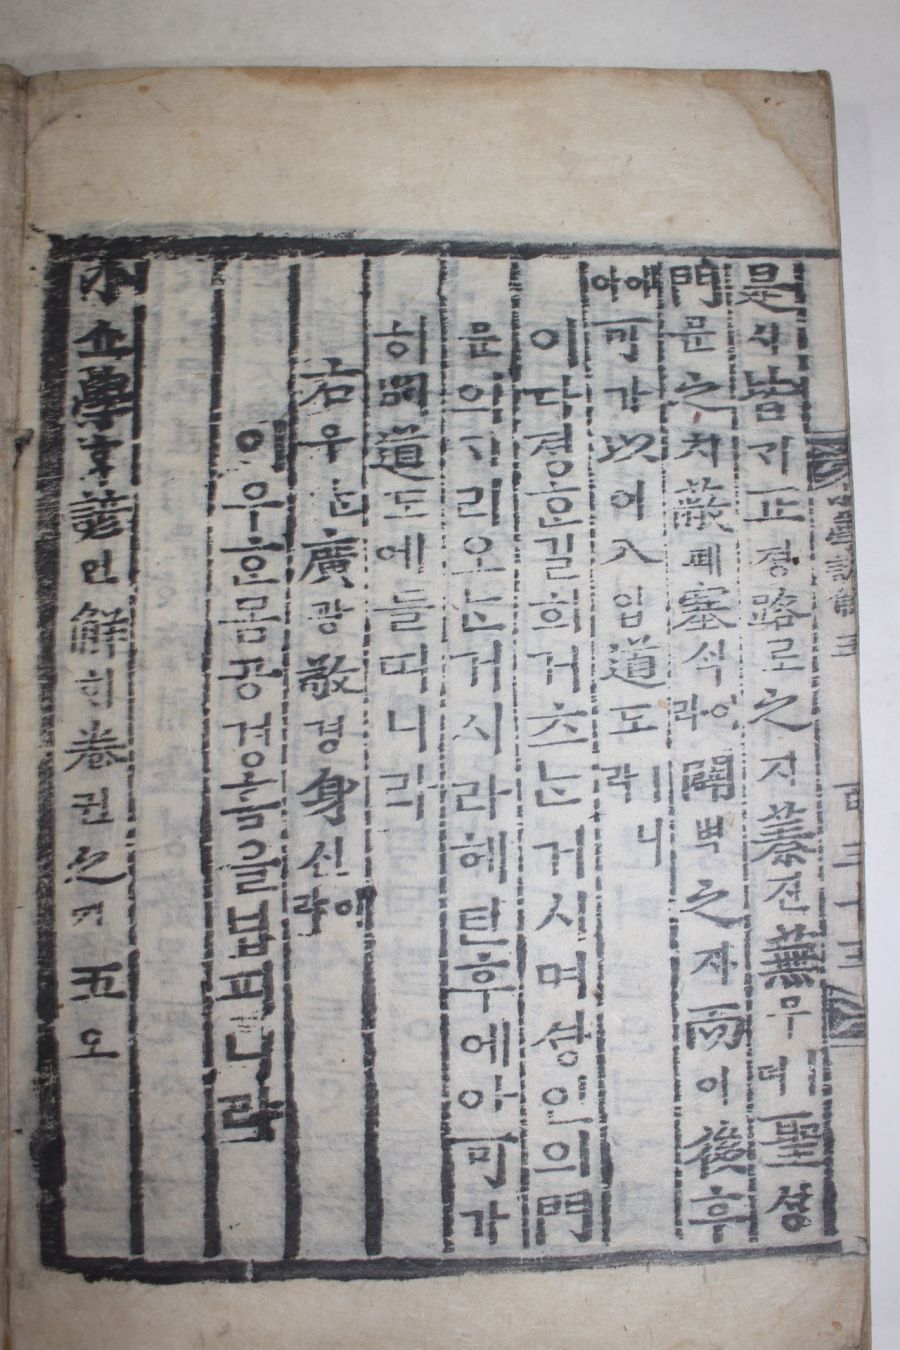 是시皆ᄀᆡ正졍路로之지蓁진蕪무ㅣ며聖셩
門문之지蔽폐塞ᄉᆡᆨ이라闢벽之지而이後후
애아可가以이入입道도ㅣ니라
이다졍ᄒᆞᆫ길희거츠ᄂᆞᆫ거시며셩인의門
문의ᄀᆞ리오ᄂᆞᆫ거시라헤틴후에아可가
히道도에들띠니라
右우ᄂᆞᆫ廣광敬경身신이라
이우ᄒᆞᆫ몸공경홈을넙피니라
小쇼學ᄒᆞᆨ諺언解ᄒᆡ卷권之지五오